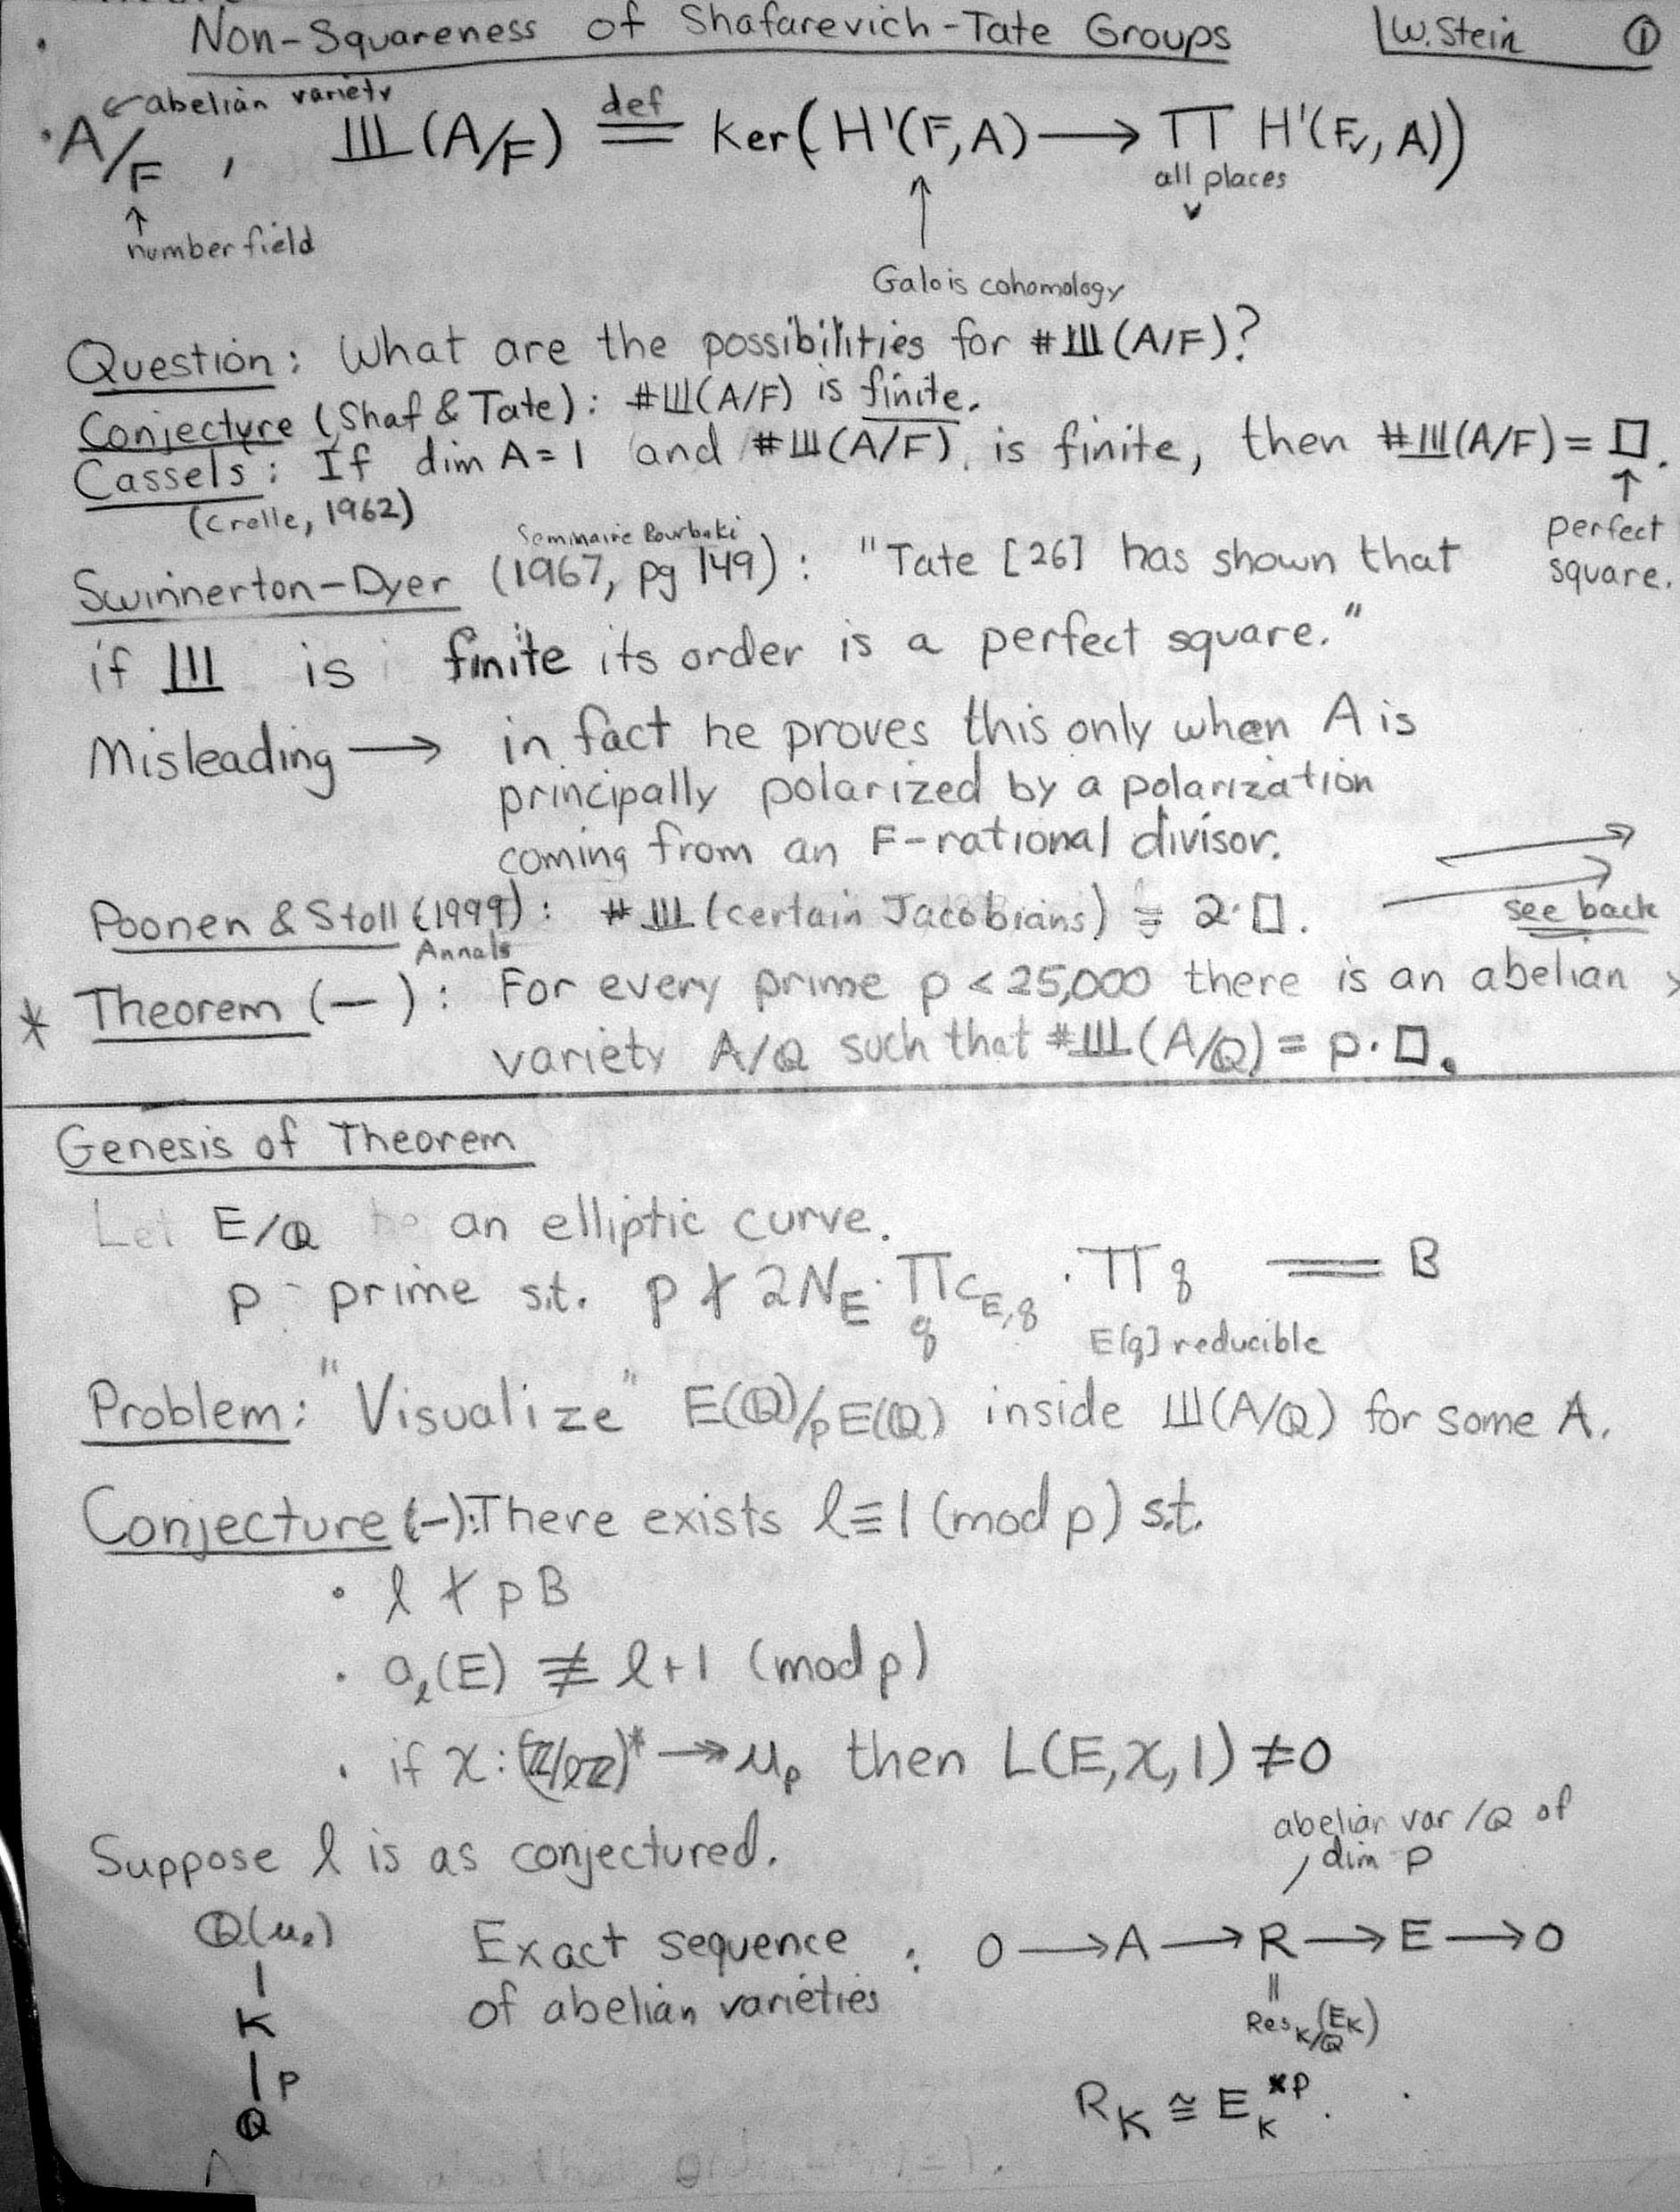 Non-Squareness of Shafarevich-Tate Groups W. Stein ①
← abelian variety
A/F , Ш(A/F) def= Ker(H¹(F,A) → ∏ H¹(Fᵥ, A))
all places v
↑ number field
↑ Galois cohomology
Question: What are the possibilities for #Ш(A/F)?
Conjecture (Shaf & Tate): #Ш(A/F) is finite.
Cassels: If dim A = 1 and #Ш(A/F) is finite, then #Ш(A/F) = □.
(Crelle, 1962)
↑ perfect square.
Seminaire Bourbaki
Swinnerton-Dyer (1967, pg 149): "Tate [26] has shown that
if Ш is finite its order is a perfect square."
Misleading → in fact he proves this only when A is
principally polarized by a polarization
coming from an F-rational divisor.
Poonen & Stoll (1999): #Ш(certain Jacobians) = 2·□.
Annals
see back
* Theorem (—): For every prime p < 25,000 there is an abelian
variety A/ℚ such that #Ш(A/ℚ) = p·□.
Genesis of Theorem
Let E/ℚ be an elliptic curve.
p prime s.t. p ∤ 2N_E · ∏ c_{E,q} · ∏ q == B
q E[q] reducible
Problem: "Visualize" E(ℚ)/pE(ℚ) inside Ш(A/ℚ) for some A.
Conjecture (—): There exists ℓ ≡ 1 (mod p) s.t.
• ℓ ∤ pB
• a_ℓ(E) ≢ ℓ+1 (mod p)
• if χ: (ℤ/ℓℤ)* ↠ μ_p then L(E,χ,1) ≠ 0
Suppose ℓ is as conjectured.
abelian var /ℚ of
dim p
ℚ(μ_ℓ)
|
K
| p
ℚ
Exact sequence : 0 → A → R → E → 0
of abelian varieties
||
Res_{K/ℚ}(E_K)
R_K ≅ E_K^{×p}.